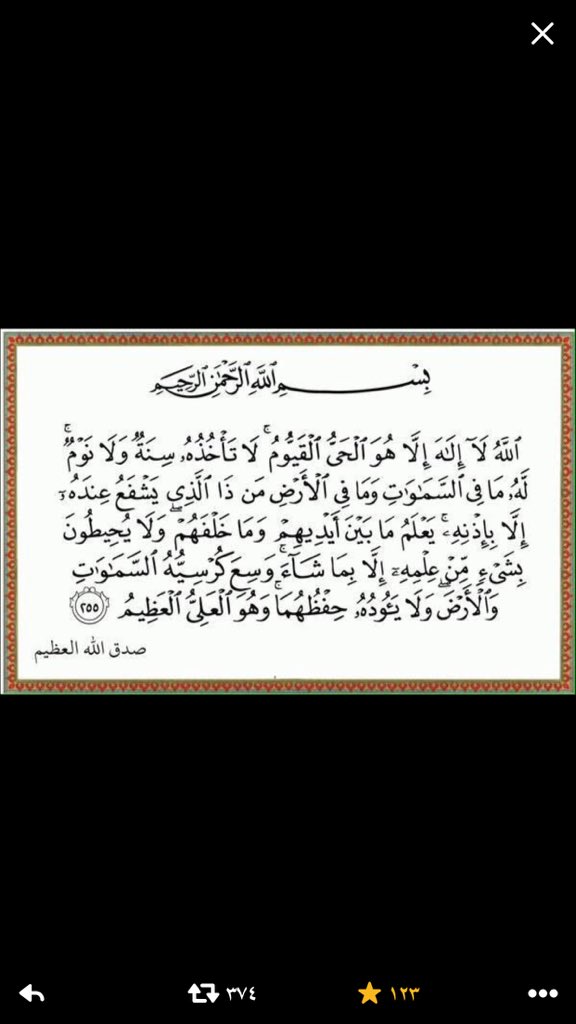 بِسْمِ ٱللَّهِ ٱلرَّحْمَٰنِ ٱلرَّحِيمِ
ٱللَّهُ لَآ إِلَٰهَ إِلَّا هُوَ ٱلْحَىُّ ٱلْقَيُّومُ ۚ لَا تَأْخُذُهُۥ سِنَةٌ وَلَا نَوْمٌ ۚ
لَّهُۥ مَا فِى ٱلسَّمَٰوَٰتِ وَمَا فِى ٱلْأَرْضِ مَن ذَا ٱلَّذِى يَشْفَعُ عِندَهُۥٓ
إِلَّا بِإِذْنِهِۦ ۚ يَعْلَمُ مَا بَيْنَ أَيْدِيهِمْ وَمَا خَلْفَهُمْ ۖ وَلَا يُحِيطُونَ
بِشَىْءٍ مِّنْ عِلْمِهِۦٓ إِلَّا بِمَا شَآءَ ۚ وَسِعَ كُرْسِيُّهُ ٱلسَّمَٰوَٰتِ
وَٱلْأَرْضَ ۖ وَلَا يَـُٔودُهُۥ حِفْظُهُمَا ۚ وَهُوَ ٱلْعَلِىُّ ٱلْعَظِيمُ ٢٥٥
صدق الله العظيم
٣٧٤ ١٢٣